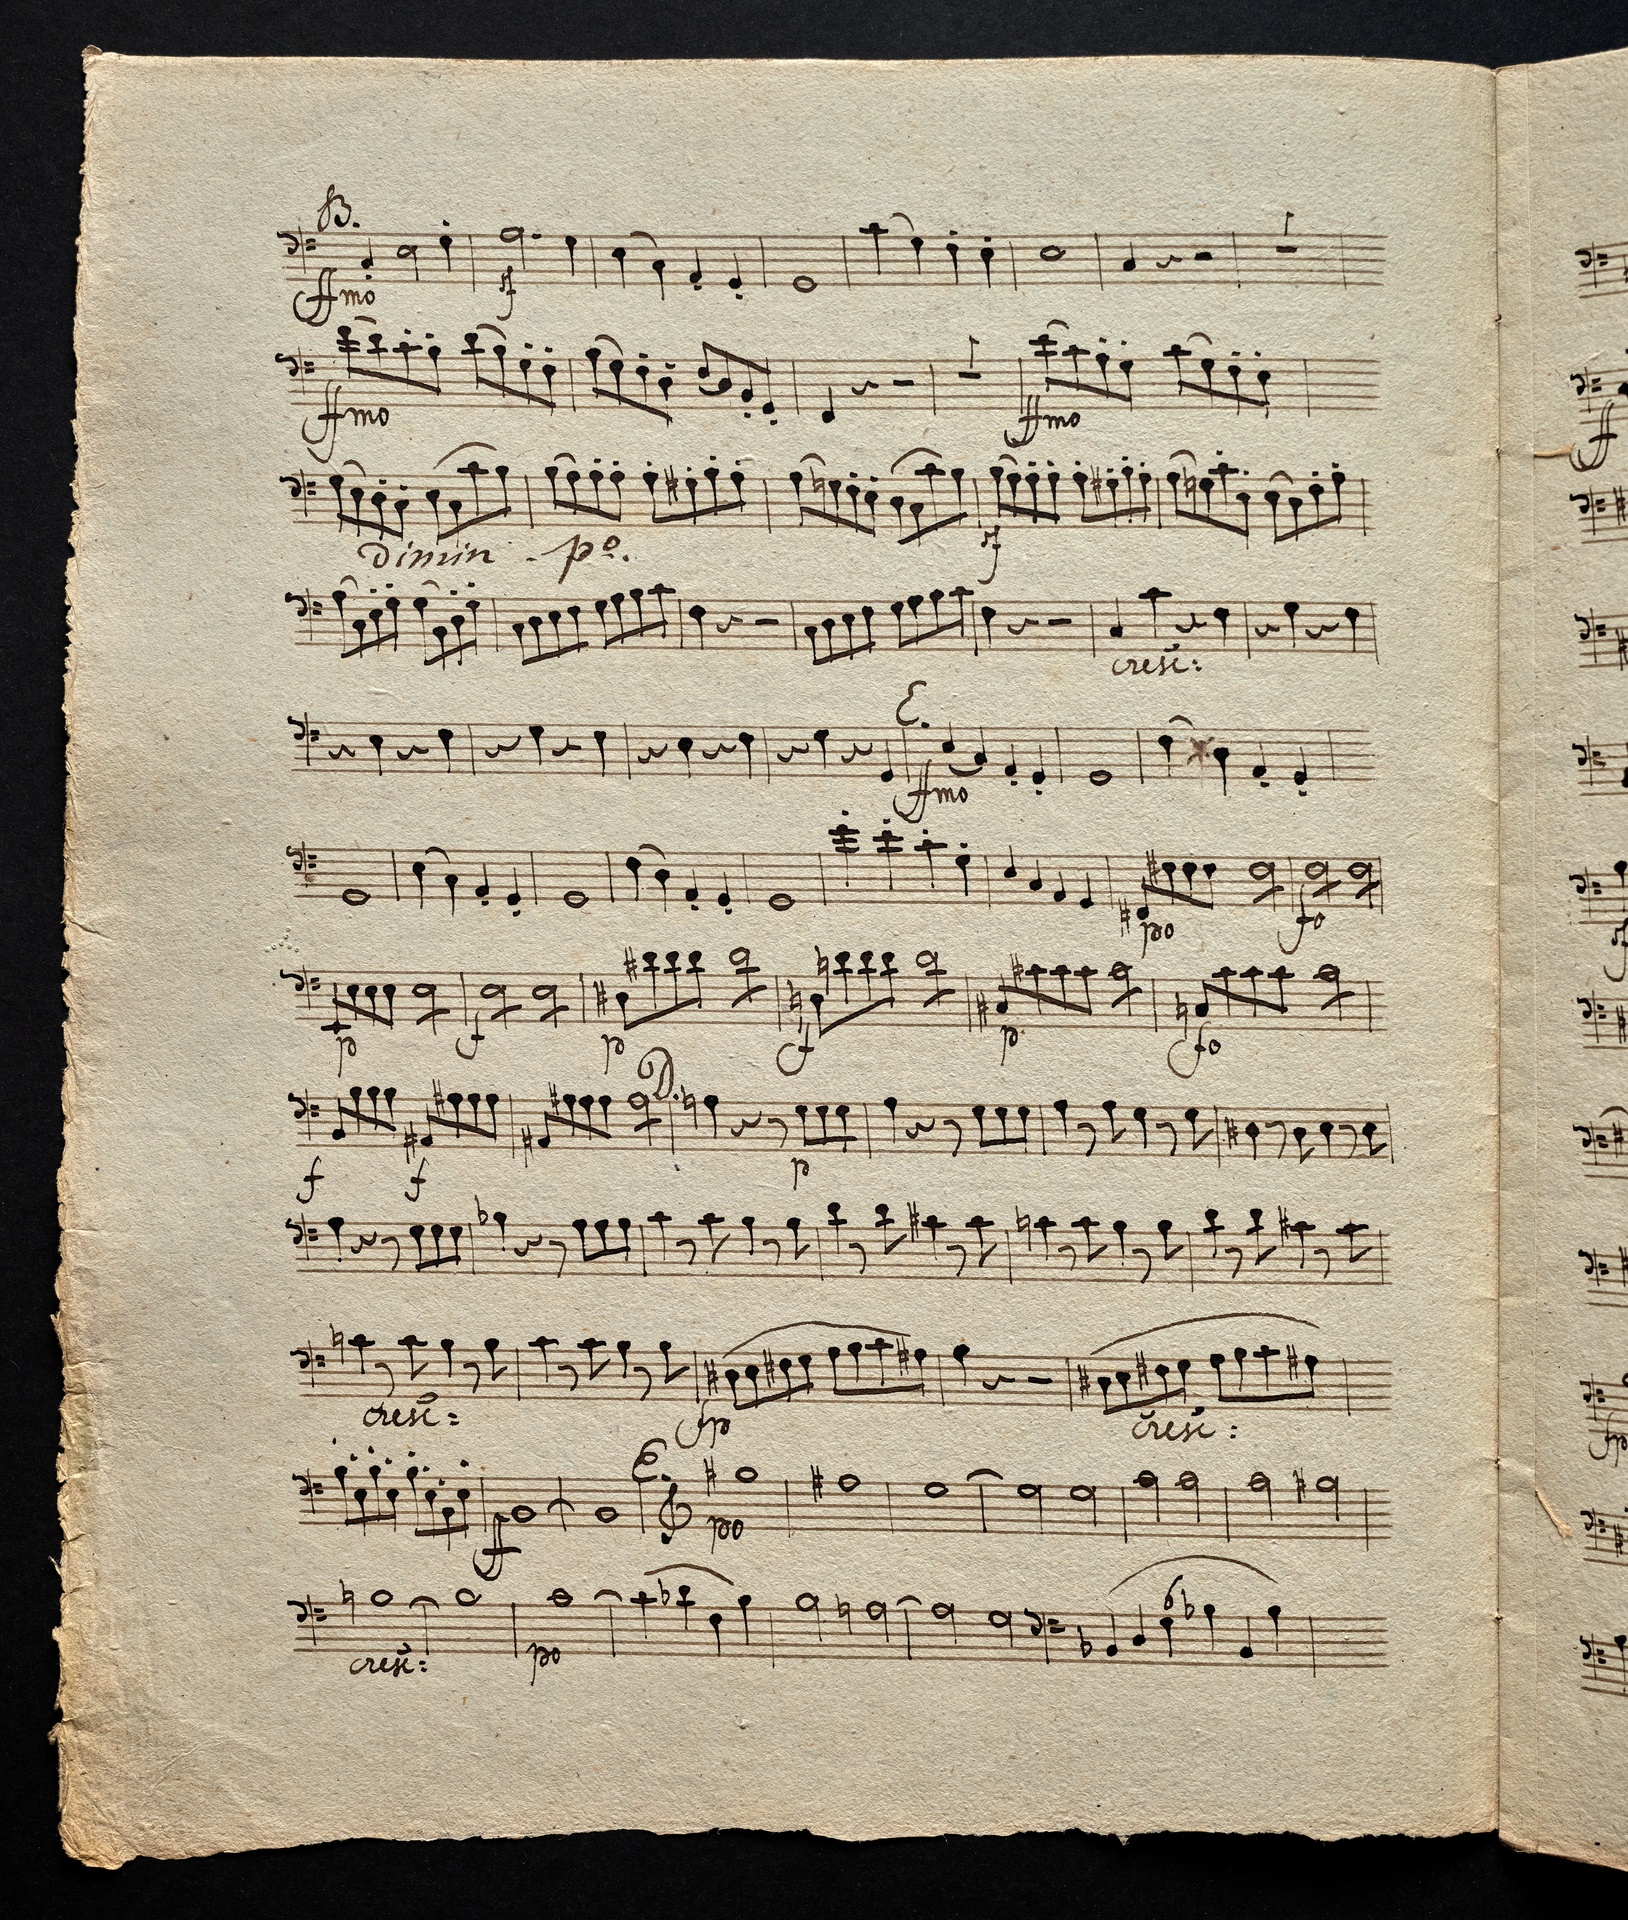 B.
ffmo sf
ffmo ffmo
dimin - po. sf
cresc:
E.
ffmo
po fo
p f p f p fo
D.
f f p
cresc: fp cresc:
E.
ff po
cresc: po 6